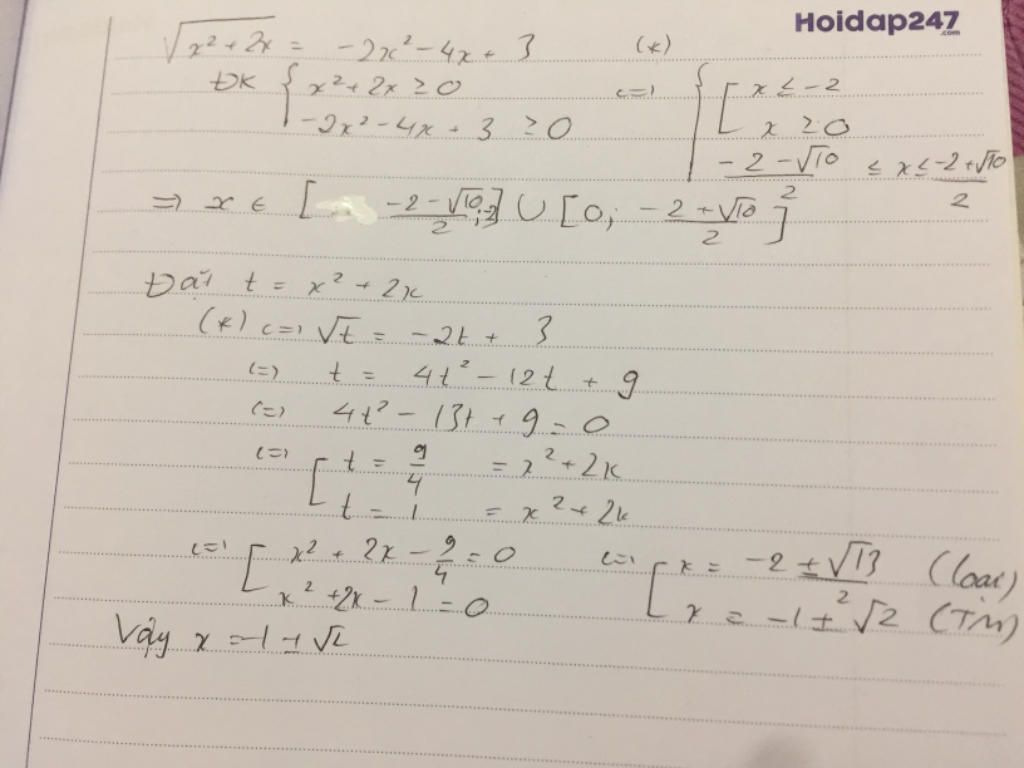 Hoidap247
.com
√(x² + 2x) = -2x² - 4x + 3 (*)
ĐK { x² + 2x ≥ 0 <=> { [ x ≤ -2
-2x² - 4x + 3 ≥ 0 x ≥ 0
(-2 - √10)/2 ≤ x ≤ (-2 + √10)/2
=> x ∈ [ (-2 - √10)/2 ; -2] ∪ [0; (-2 + √10)/2 ]
Đặt t = x² + 2x
(*) <=> √t = -2t + 3
<=> t = 4t² - 12t + 9
<=> 4t² - 13t + 9 = 0
<=> [ t = 9/4 = x² + 2x
t = 1 = x² + 2x
<=> [ x² + 2x - 9/4 = 0 <=> [ x = (-2 ± √13)/2 (loại)
x² + 2x - 1 = 0 x = -1 ± √2 (TM)
Vậy x = -1 ± √2